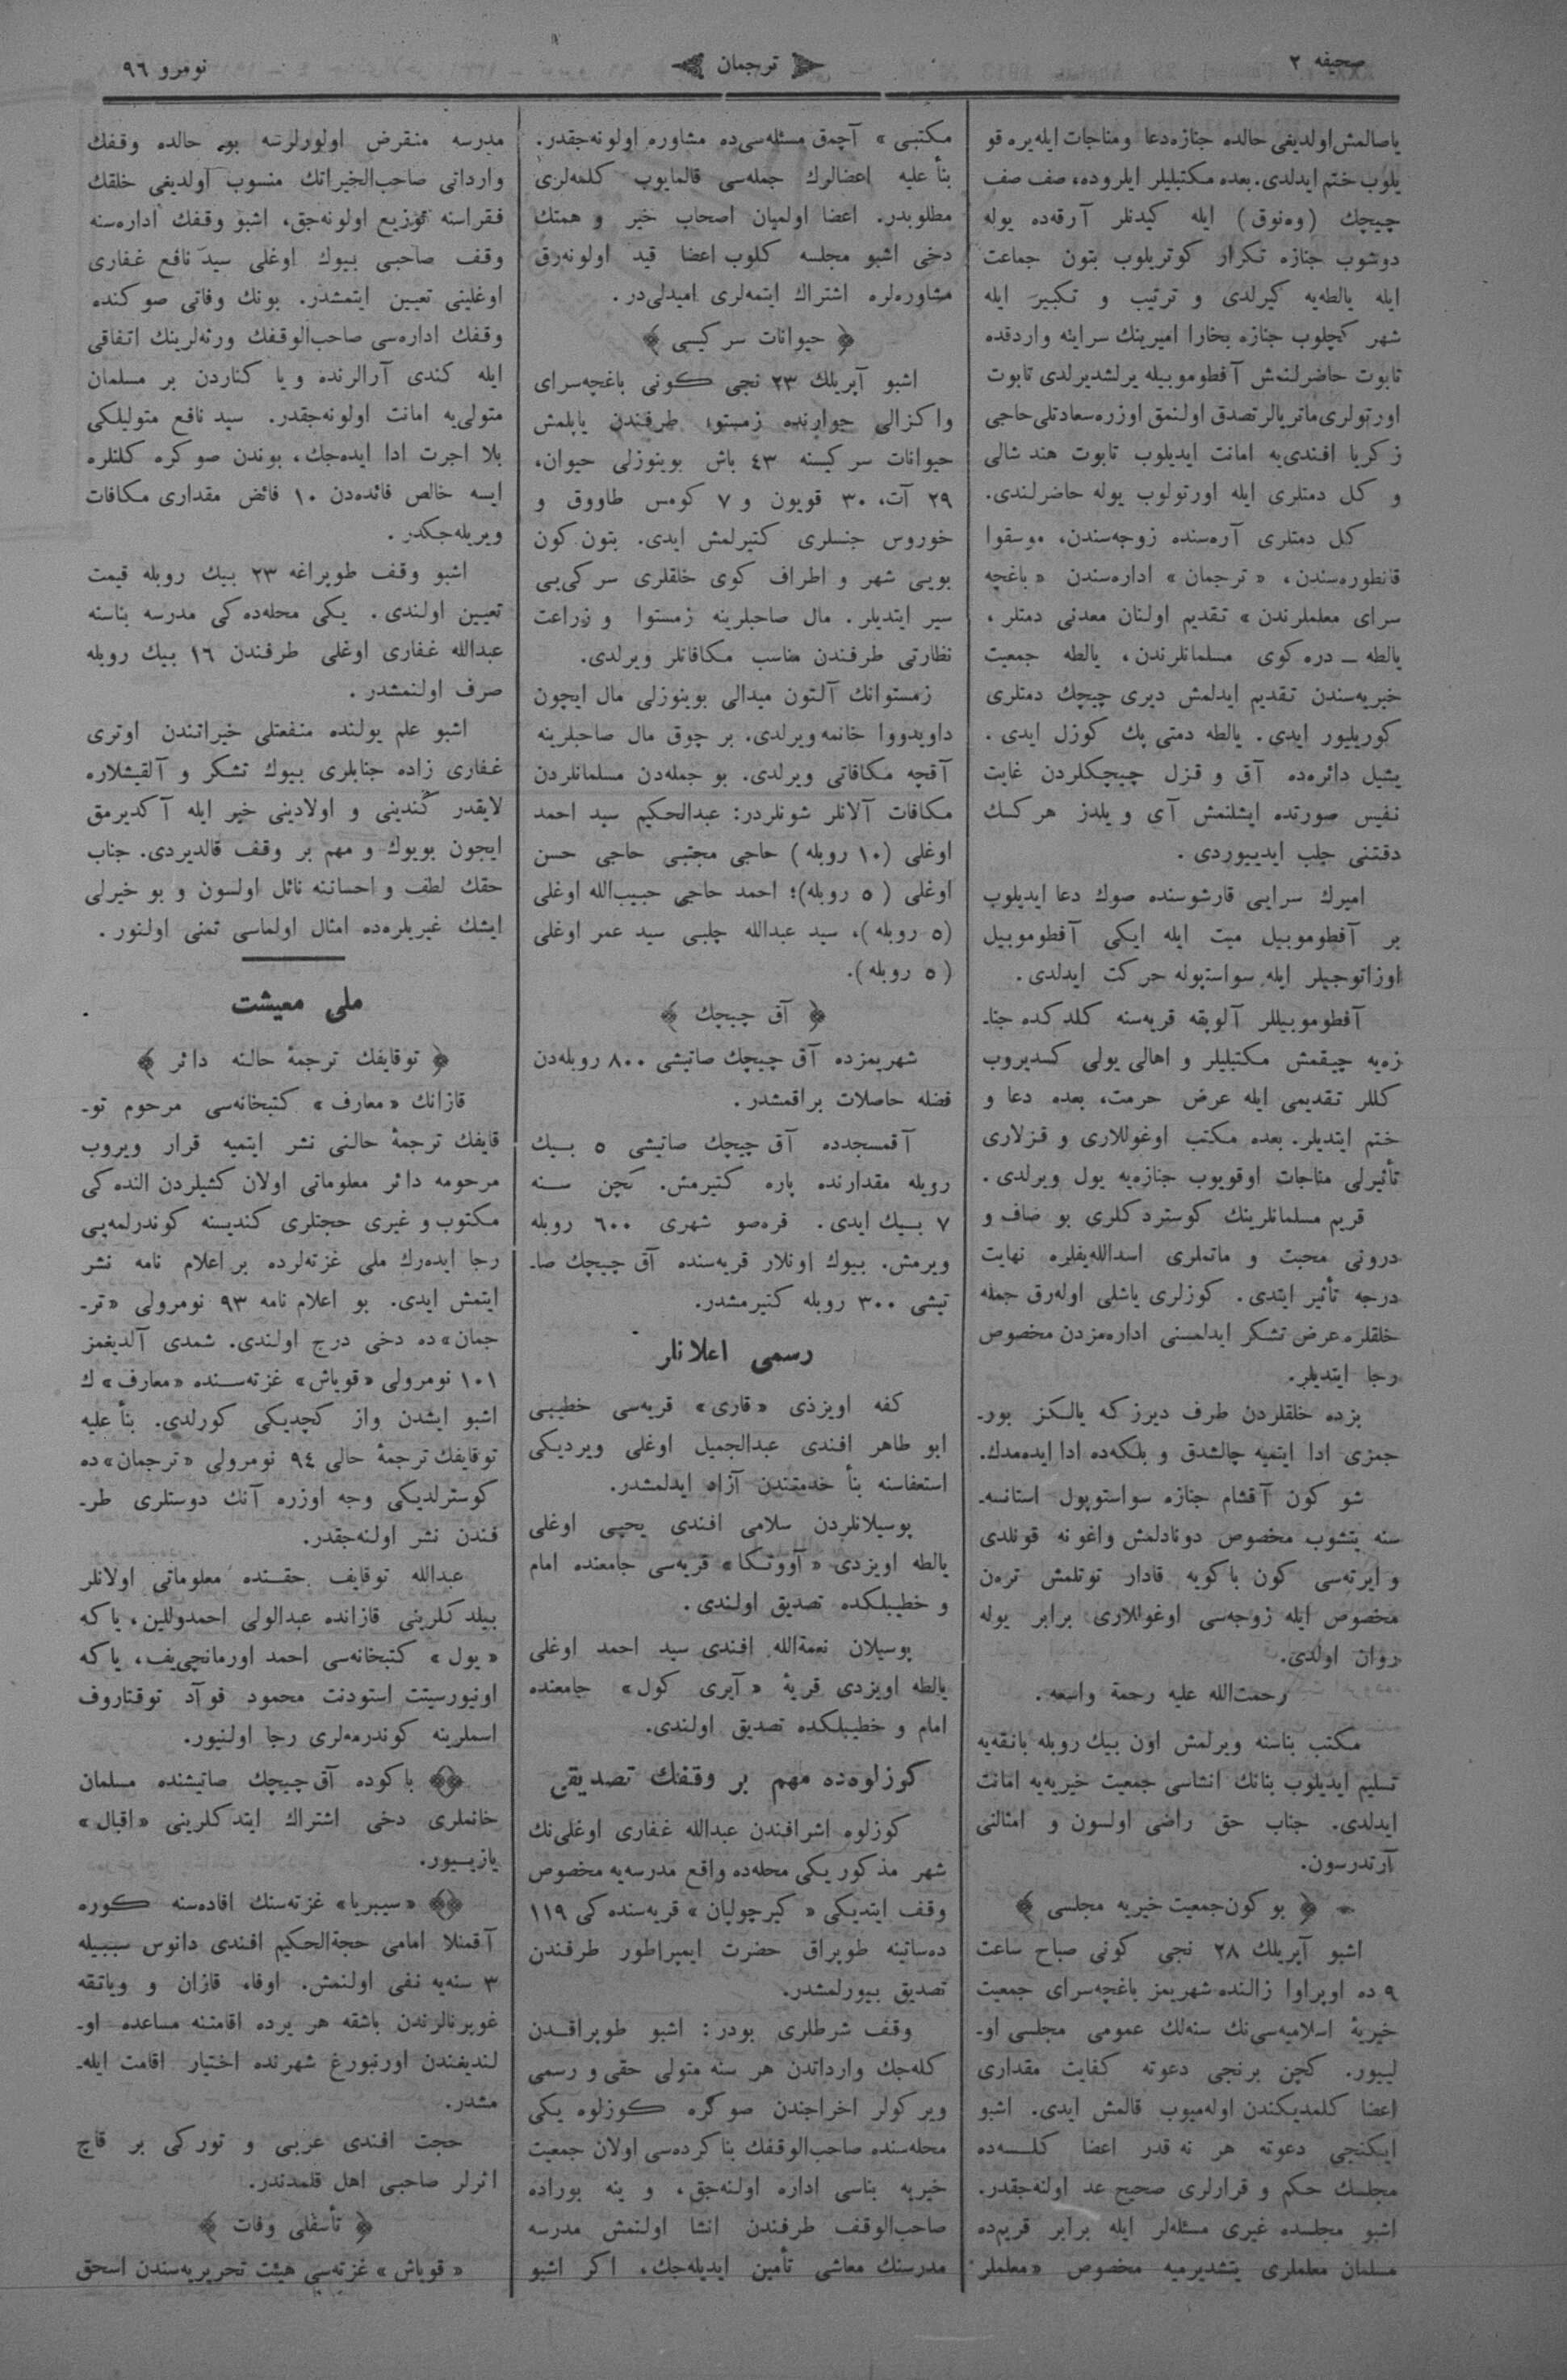 صحیفه ۲
ترجمان
نومرو ۹٦
یاصالمش اولدیغی حالده جنازه دعا ومناجات ایله یره قو
یلوب ختم ایدلدی. بعده مکتبلیلر ایلروده، صف صف
چیچك (وه‌نوق) ایله کیدنلر آرقه‌ده یوله
دوشوب جنازه تکرار کوتریلوب بتون جماعت
ایله یالطه‌یه کیرلدی و ترتیب و تکبیر ایله
شهر کچلوب جنازه بخارا امیرینك سراینه واردقده
تابوت حاضرلنمش آفطوموبیله یرلشدیرلدی تابوت
اورتولری ماتریالر تصدق اولنمق اوزره سعادتلی حاجی
زکریا افندی‌یه امانت ایدیلوب تابوت هند شالی
و کل دمتلری ایله اورتولوب یوله حاضرلندی.
کل دمتلری آره‌سنده زوجه‌سندن، موسقوا
قانطوره‌سندن، «ترجمان» اداره‌سندن «باغچه
سرای معلملرندن» تقدیم اولنان معدنی دمتلر،
یالطه ــ دره کوی مسلمانلرندن، یالطه جمعیت
خیریه‌سندن تقدیم ایدلمش دیری چیچك دمتلری
کوریلیور ایدی. یالطه دمتی پك کوزل ایدی.
یشیل دائره‌ده آق و قزل چیچکلردن غایت
نفیس صورتده ایشلنمش آی و یلدز هرکسك
دقتنی جلب ایدییوردی.
امیرك سرایی قارشوسنده صوك دعا ایدیلوب
بر آفطوموبیل میت ایله ایکی آفطوموبیل
اوزاتوجیلر ایله سواستپوله حرکت ایدلدی.
آفطوموبیللر آلوپقه قریه‌سنه کلدکده جنا-
زه‌یه چیقمش مکتبلیلر و اهالی یولی کسدیروب
کللر تقدیمی ایله عرض حرمت، بعده دعا و
ختم ایتدیلر. بعده مکتب اوغوللاری و قزلاری
تأثیرلی مناجات اوقویوب جنازه‌یه یول ویرلدی.
قریم مسلمانلرینك کوستردکلری بو صاف و
درونی محبت و ماتملری اسدالله‌یفلره نهایت
درجه تأثیر ایتدی. کوزلری یاشلی اوله‌رق جمله
خلقلره عرض تشکر ایدلمسنی اداره‌مزدن مخصوص
رجا ایتدیلر.
بزده خلقلردن طرف دیرزکه یالکز بور-
جمزی ادا ایتمیه چالشدق و بلکه‌ده ادا ایده‌مدك.
شو کون آقشام جنازه سواستوپول استانسه-
سنه یتشوب مخصوص دونادلمش واغونه قونلدی
و ایرته‌سی کون باکویه قادار توتلمش تره‌ن
مخصوص ایله زوجه‌سی اوغوللاری برابر یوله
روان اولدی.
رحمت‌الله علیه رحمة واسعه.
مکتب بناسنه ویرلمش اون بیك روبله بانقه‌یه
تسلیم ایدیلوب بنانك انشاسی جمعیت خیریه‌یه امانت
ایدلدی. جناب حق راضی اولسون و امثالنی
آرتدرسون.
﴿ بوکون جمعیت خیریه مجلسی ﴾
اشبو آپریلك ۲۸ نجی کونی صباح ساعت
۹ ده اوپراوا زالنده شهریمز باغچه‌سرای جمعیت
خیریهٔ اسلامیه‌سی‌نك سنه‌لك عمومی مجلسی او-
لییور. کچن برنجی دعوته کفایت مقداری
اعضا کلمدیکندن اوله‌میوب قالمش ایدی. اشبو
ایکنجی دعوته هر نه قدر اعضا کلسه‌ده
مجلسك حکم و قرارلری صحیح عد اولنه‌جقدر.
اشبو مجلسده غیری مسئله‌لر ایله برابر قریم‌ده
مسلمان معلملری یتشدیرمیه مخصوص «معلملر
مکتبی» آچمق مسئله‌سی‌ده مشاوره اولونه‌جقدر.
بنأ علیه اعضالرك جمله‌سی قالمایوب کلمه‌لری
مطلوبدر. اعضا اولمیان اصحاب خیر و همتك
دخی اشبو مجلسه کلوب اعضا قید اولونه‌رق
مشاوره‌لره اشتراك ایتمه‌لری امیدلی‌در.
﴿ حیوانات سرکیسی ﴾
اشبو آپریلك ۲۳ نجی کونی باغچه‌سرای
واکزالی جوارنده زمستوا طرفندن یاپلمش
حیوانات سرکیسنه ٤۳ باش بوینوزلی حیوان،
۲۹ آت، ۳۰ قویون و ۷ کومس طاووق و
خوروس جنسلری کتیرلمش ایدی. بتون کون
بویی شهر و اطراف کوی خلقلری سرکی‌یی
سیر ایتدیلر. مال صاحبلرینه زمستوا و زراعت
نظارتی طرفندن مناسب مکافاتلر ویرلدی.
زمستوانك آلتون میدالی بوینوزلی مال ایچون
داویدووا خانمه ویرلدی. بر چوق مال صاحبلرینه
آقچه مکافاتی ویرلدی. بو جمله‌دن مسلمانلردن
مکافات آلانلر شونلردر: عبدالحکیم سید احمد
اوغلی (۱۰ روبله) حاجی مجتبی حاجی حسن
اوغلی (٥ روبله)؛ احمد حاجی حبیب‌الله اوغلی
(٥ روبله)، سید عبدالله چلبی سید عمر اوغلی
(٥ روبله).
﴿ آق چیچك ﴾
شهریمزده آق چیچك صاتیشی ۸۰۰ روبله‌دن
فضله حاصلات براقمشدر.
آقمسجدده آق چیچك صاتیشی ٥ بیك
روبله مقدارنده پاره کتیرمش. کچن سنه
۷ بیك ایدی. قره‌صو شهری ٦۰۰ روبله
ویرمش. بیوك اونلار قریه‌سنده آق چیچك صا-
تیشی ۳۰۰ روبله کتیرمشدر.
رسمی اعلانلر
کفه اویزدی «قاری» قریه‌سی خطیبی
ابو طاهر افندی عبدالجمیل اوغلی ویردیکی
استعفاسنه بنأ خدمتندن آزاد ایدلمشدر.
پوسیلانلردن سلامی افندی یحیی اوغلی
یالطه اویزدی «آووتکا» قریه‌سی جامعنده امام
و خطیبلکده تصدیق اولندی.
پوسیلان نعمةالله افندی سید احمد اوغلی
یالطه اویزدی قریهٔ «آیری کول» جامعنده
امام و خطیبلکده تصدیق اولندی.
کوزلوه‌ده مهم بر وقفك تصدیقی
کوزلوه اشرافندن عبدالله غفاری اوغلی‌نك
شهر مذکور یکی محله‌ده واقع مدرسه‌یه مخصوص
وقف ایتدیکی «کیرچولپان» قریه‌سنده‌کی ۱۱۹
ده‌ساتینه طوپراق حضرت ایمپراطور طرفندن
تصدیق بیورلمشدر.
وقف شرطلری بودر: اشبو طوپراقدن
کله‌جك وارداتدن هر سنه متولی حقی و رسمی
ویرکولر اخراجندن صوکره کوزلوه یکی
محله‌سنده صاحب‌الوقفك بنا کرده‌سی اولان جمعیت
خیریه بناسی اداره اولنه‌جق، و ینه بوراده
صاحب‌الوقف طرفندن انشا اولنمش مدرسه
مدرسنك معاشی تأمین ایدیله‌جك، اکر اشبو
مدرسه منقرض اولورلرسه بو حالده وقفك
وارداتی صاحب‌الخیراتك منسوب اولدیغی خلقك
فقراسنه توزیع اولونه‌جق، اشبو وقفك اداره‌سنه
وقف صاحبی بیوك اوغلی سید نافع غفاری
اوغلینی تعیین ایتمشدر. بونك وفاتی صوکنده
وقفك اداره‌سی صاحب‌الوقفك ورثه‌لرینك اتفاقی
ایله کندی آرالرنده ویا کناردن بر مسلمان
متولی‌یه امانت اولونه‌جقدر. سید نافع متولیلکی
بلا اجرت ادا ایده‌جك، بوندن صوکره کلنلره
ایسه خالص فائده‌دن ۱۰ فائض مقداری مکافات
ویریله‌جکدر.
اشبو وقف طوپراغه ۲۳ بیك روبله قیمت
تعیین اولندی. یکی محله‌ده‌کی مدرسه بناسنه
عبدالله غفاری اوغلی طرفندن ۱٦ بیك روبله
صرف اولنمشدر.
اشبو علم یولنده منفعتلی خیراتندن اوتری
غفاری زاده جنابلری بیوك تشکر و آلقیشلاره
لایقدر کندینی و اولادینی خیر ایله آکدیرمق
ایچون بویوك و مهم بر وقف قالدیردی. جناب
حقك لطف و احساننه نائل اولسون و بو خیرلی
ایشك غیریلره‌ده امثال اولماسی تمنی اولنور.
ملی معیشت
﴿ توقایفك ترجمهٔ حالنه دائر ﴾
قازانك «معارف» کتبخانه‌سی مرحوم تو-
قایفك ترجمهٔ حالنی نشر ایتمیه قرار ویروب
مرحومه دائر معلوماتی اولان کشیلردن النده‌کی
مکتوب و غیری حجتلری کندیسنه کوندرلمه‌یی
رجا ایده‌رك ملی غزته‌لرده بر اعلام نامه نشر
ایتمش ایدی. بو اعلام نامه ۹۳ نومرولی «تر-
جمان»ده دخی درج اولندی. شمدی آلدیغمز
۱۰۱ نومرولی «قویاش» غزته‌سنده «معارف»ك
اشبو ایشدن واز کچدیکی کورلدی. بنأ علیه
توقایفك ترجمهٔ حالی ۹٤ نومرولی «ترجمان»ده
کوسترلدیکی وجه اوزره آنك دوستلری طر-
فندن نشر اولنه‌جقدر.
عبدالله توقایف حقنده معلوماتی اولانلر
بیلدکلرینی قازانده عبدالولی احمدوللین، یاکه
«یول» کتبخانه‌سی احمد اورمانچی‌یف، یاکه
اونیورسیتت استودنت محمود فوآد توقتاروف
اسملرینه کوندرمه‌لری رجا اولنیور.
باکوده آق چیچك صاتیشنده مسلمان
خانملری دخی اشتراك ایتدکلرینی «اقبال»
یازییور.
«سیبریا» غزته‌سنك افاده‌سنه کوره
آقمنلا امامی حجةالحکیم افندی دانوس سیبیله
۳ سنه‌یه نفی اولنمش. اوفا، قازان و ویاتقه
غوبرنالرندن باشقه هر یرده اقامتنه مساعده او-
لندیغندن اورنبورغ شهرنده اختیار اقامت ایله-
مشدر.
حجت افندی عربی و تورکی بر قاچ
اثرلر صاحبی اهل قلمدندر.
﴿ تأسفلی وفات ﴾
«قویاش» غزته‌سی هیئت تحریریه‌سندن اسحق